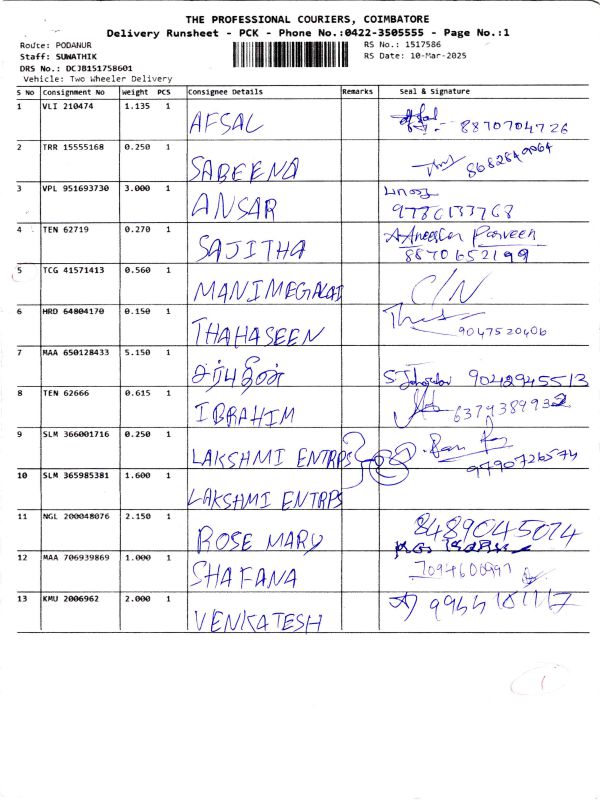 THE PROFESSIONAL COURIERS, COIMBATORE
Delivery Runsheet - PCK - Phone No.:0422-3505555 - Page No.:1
Route: PODANUR
RS No.: 1517586
Staff: SUWATHIK
RS Date: 10-Mar-2025
DRS No.: DCJB151758601
Vehicle: Two Wheeler Delivery
S No Consignment No Weight PCS Consignee Details Remarks Seal & Signature
1 VLI 210474 1.135 1 AFSAL 8870704726
2 TRR 15555168 0.250 1 SABEENA
3 VPL 951693730 3.000 1 ANSAR
4 TEN 62719 0.270 1 SAJITHA Parveen
8870652199
5 TCG 41571413 0.560 1 MANIMEGALAI C/N
6 HRD 64804170 0.150 1 THAHASEEN 9047520406
7 MAA 650128433 5.150 1 9042945513
8 TEN 62666 0.615 1 IBRAHIM 6379389932
9 SLM 366001716 0.250 1 LAKSHMI ENTRPS
10 SLM 365985381 1.600 1 LAKSHMI ENTRPS
11 NGL 200048076 2.150 1 ROSE MARY 8489045074
12 MAA 706939869 1.000 1 SHAFANA 7094600997
13 KMU 2006962 2.000 1 VENKATESH
1